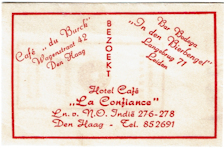 Café „du Burch"
Wagenstraat 42
Den Haag
BEZOEKT
Bar Bodega
„In den Bierbengel"
Langebrug 71
Leiden
Hotel Café
„La Confiance"
Ln. v. N.O. Indië 276-278
Den Haag - Tel. 852691